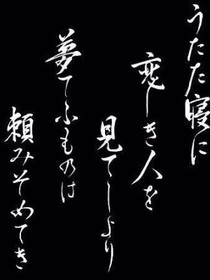 うたた寝に
恋しき人を
見てしより
夢てふものは
頼みそめてき